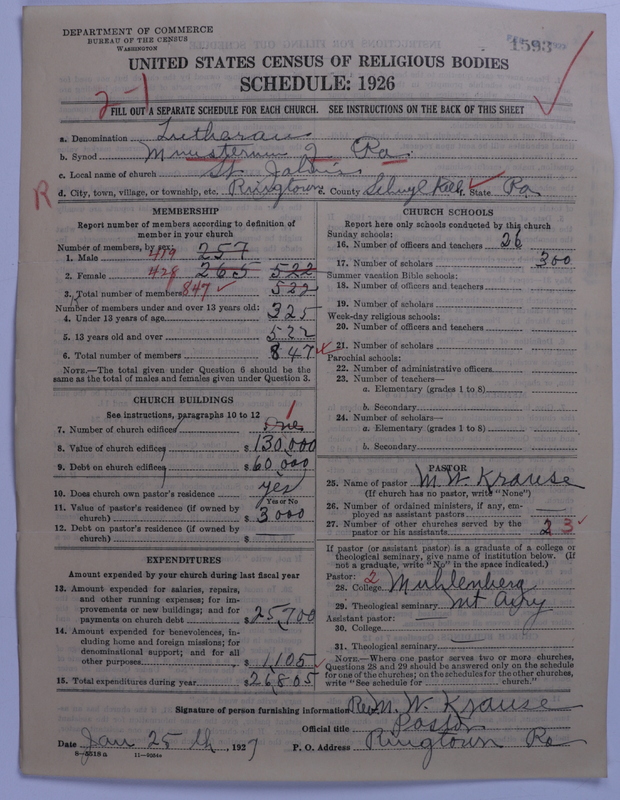 DEPARTMENT OF COMMERCE
BUREAU OF THE CENSUS
WASHINGTON
1593
UNITED STATES CENSUS OF RELIGIOUS BODIES
SCHEDULE: 1926
2-1
FILL OUT A SEPARATE SCHEDULE FOR EACH CHURCH. SEE INSTRUCTIONS ON THE BACK OF THIS SHEET
a. Denomination Lutheran
b. Synod Ministerium of Pa.
c. Local name of church St. John's
R
d. City, town, village, or township, etc. Ringtown e. County Schuylkill f. State Pa
MEMBERSHIP
Report number of members according to definition of
member in your church
Number of members, by sex:
1. Male 419 257
2. Female 428 265 522
3. Total number of members 847 522
Number of members under and over 13 years old:
4. Under 13 years of age 325
5. 13 years old and over 522
6. Total number of members 847
NOTE.—The total given under Question 6 should be the
same as the total of males and females given under Question 3.
CHURCH BUILDINGS
See instructions, paragraphs 10 to 12
7. Number of church edifices One 1
8. Value of church edifices $ 130,000
9. Debt on church edifices $ 60,000
10. Does church own pastor's residence yes
Yes or No
11. Value of pastor's residence (if owned by
church) $ 3000
12. Debt on pastor's residence (if owned by
church) $
EXPENDITURES
Amount expended by your church during last fiscal year
13. Amount expended for salaries, repairs,
and other running expenses; for im-
provements or new buildings; and for
payments on church debt $ 25,700
14. Amount expended for benevolences, in-
cluding home and foreign missions; for
denominational support; and for all
other purposes $ 1,105
15. Total expenditures during year $ 26,805
CHURCH SCHOOLS
Report here only schools conducted by this church
Sunday schools:
16. Number of officers and teachers 26
17. Number of scholars 300
Summer vacation Bible schools:
18. Number of officers and teachers
19. Number of scholars
Week-day religious schools:
20. Number of officers and teachers
21. Number of scholars
Parochial schools:
22. Number of administrative officers
23. Number of teachers—
a. Elementary (grades 1 to 8)
b. Secondary
24. Number of scholars—
a. Elementary (grades 1 to 8)
b. Secondary
PASTOR
25. Name of pastor M. W. Krause
(If church has no pastor, write "None")
26. Number of ordained ministers, if any, em-
ployed as assistant pastors
27. Number of other churches served by the
pastor or his assistants 2 3
If pastor (or assistant pastor) is a graduate of a college or
theological seminary, give name of institution below. (If
not a graduate, write "No" in the space indicated.)
Pastor: 2
28. College Muhlenberg
29. Theological seminary Mt Airy
Assistant pastor:
30. College
31. Theological seminary
NOTE.—Where one pastor serves two or more churches,
Questions 28 and 29 should be answered only on the schedule
for one of the churches; on the schedules for the other churches,
write "See schedule for church."
Signature of person furnishing information Rev. M. W. Krause
Official title Pastor
Date Jan 25th, 1927 P. O. Address Ringtown Pa
8—5518a 11—9054